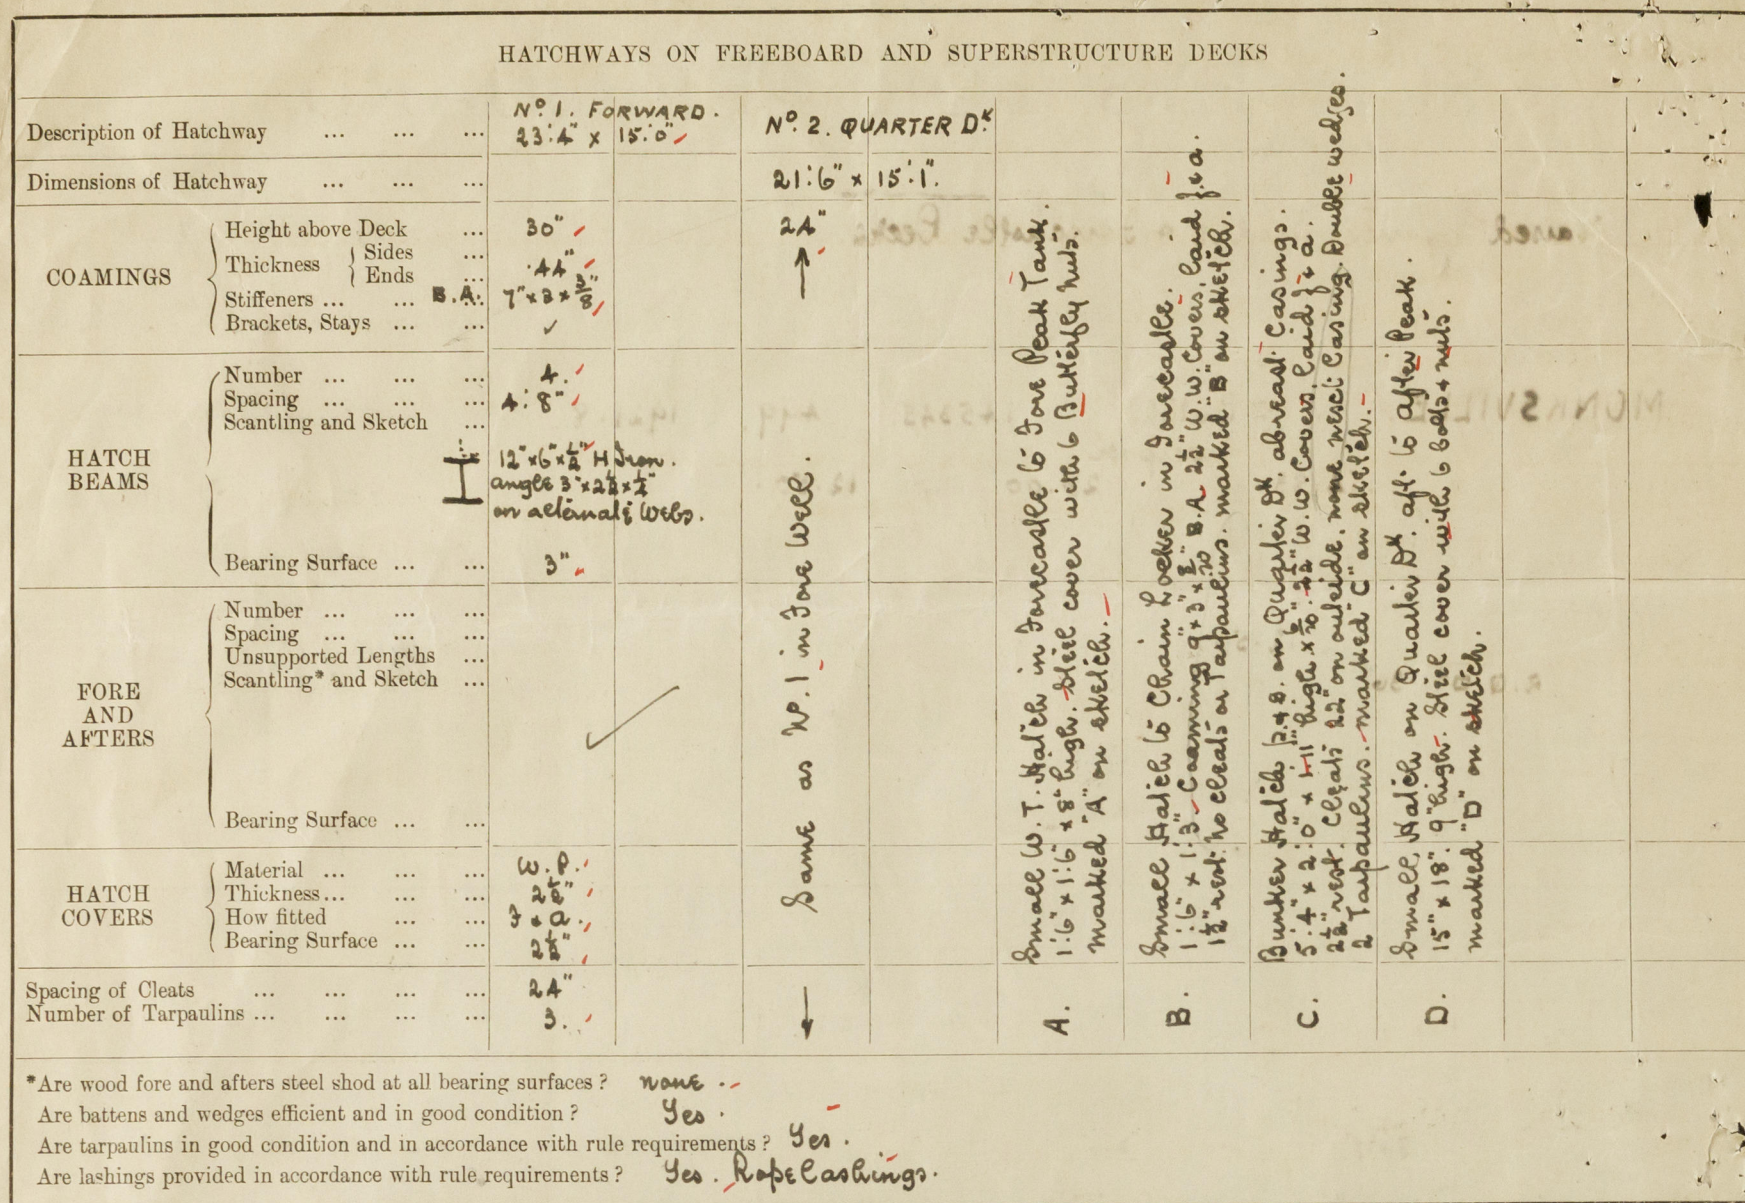 HATCHWAYS ON FREEBOARD AND SUPERSTRUCTURE DECKS
Description of Hatchway ... ... ... No. 1. FORWARD. 23'.4" x 15'.0" No. 2. QUARTER DK.
Dimensions of Hatchway ... ... ... 21'.6" x 15'.1".
COAMINGS
Height above Deck ... 30" 24"
Thickness { Sides ...
Ends ... .44"
Stiffeners ... ... B.A. 7" x 3 x 3/8"
Brackets, Stays ... ... ✓
HATCH BEAMS
Number ... ... ... 4.
Spacing ... ... ... 4'. 8"
Scantling and Sketch ...
12" x 6" x 1/2" H Iron.
angle 3" x 2 1/2 x 1/2"
on alternate Webs.
Bearing Surface ... ... 3"
FORE AND AFTERS
Number ... ... ...
Spacing ... ... ...
Unsupported Lengths ...
Scantling* and Sketch ...
Bearing Surface ... ...
HATCH COVERS
Material ... ... ... W. P.
Thickness ... ... ... 2 1/2"
How fitted ... ... F & a.
Bearing Surface ... ... 2 1/2"
Spacing of Cleats ... ... ... ... 24"
Number of Tarpaulins ... ... ... ... 3.
Same as No. 1 in Fore Well.
A. Small W. T. Hatch in Forecastle to Fore Peak Tank.
1'.6" x 1'.6" x 8" high. Steel cover with 6 Butterfly nuts.
marked "A" on sketch.
B. Small Hatch to Chain Locker in Forecastle.
1'.6" x 1'.3" Coaming 9" x 3" x 8/20" B.A. 2 1/2" W.W. Covers, laid f & a.
1 1/2" rest. no cleats or Tarpaulins. marked "B" on sketch.
C. Bunker Hatch p. & s. on Quarter DK. abreast Casings.
5'.4" x 2'.0" x 1'.11" high x 6/20" 2 1/2" W.W. Covers, laid f & a.
2 1/2" rest. Cleats 22" on outside, none next Casing. Double wedges.
2 Tarpaulins. marked "C" on sketch.
D. Small Hatch on Quarter DK. aft. to after Peak.
15" x 18". 9" high. Steel cover with 6 bolts & nuts.
marked "D" on sketch.
*Are wood fore and afters steel shod at all bearing surfaces ? none.
Are battens and wedges efficient and in good condition ? Yes.
Are tarpaulins in good condition and in accordance with rule requirements ? Yes.
Are lashings provided in accordance with rule requirements ? Yes. Rope lashings.